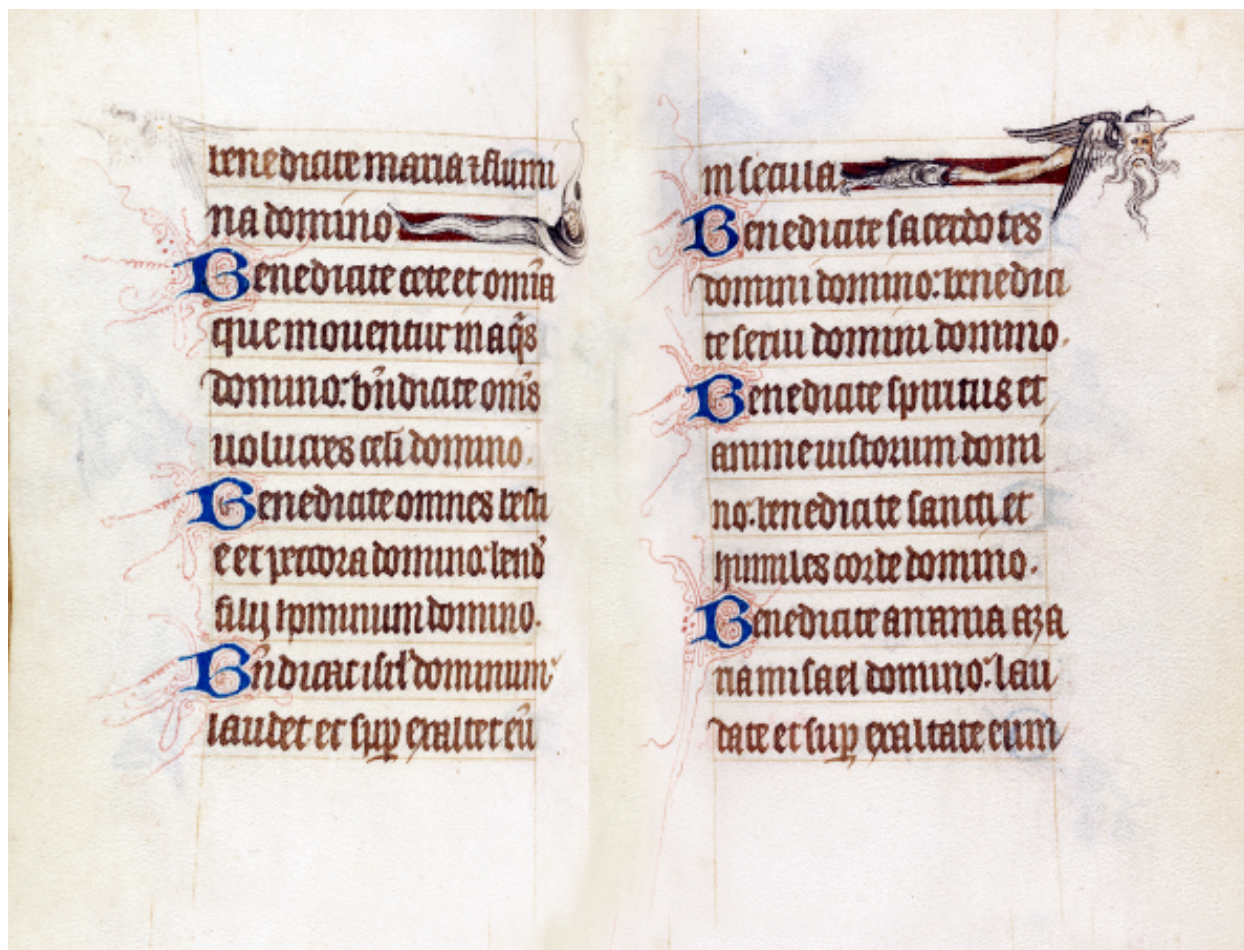 benedicite maria ⁊ flumi
na domino
Benedicite cete et om̄ia
que mouentur in aq̄s
domino: bn̄dicite om̄s
uolucres celi domino.
Benedicite omnes besti
e et peccora domino: bend̄
filij hominum domino.
Bn̄dicat isrl̄ dominum:
laudet et suꝑ exaltet eū
in secula.
Benedicite sacerdotes
domini domino: benedici
te serui domini domino.
Benedicite spiritus et
anime iustorum domi
no: benedicite sancti et
humiles corde domino.
Benedicite anania aza
na misael domino: lau
date et suꝑ exaltate eum